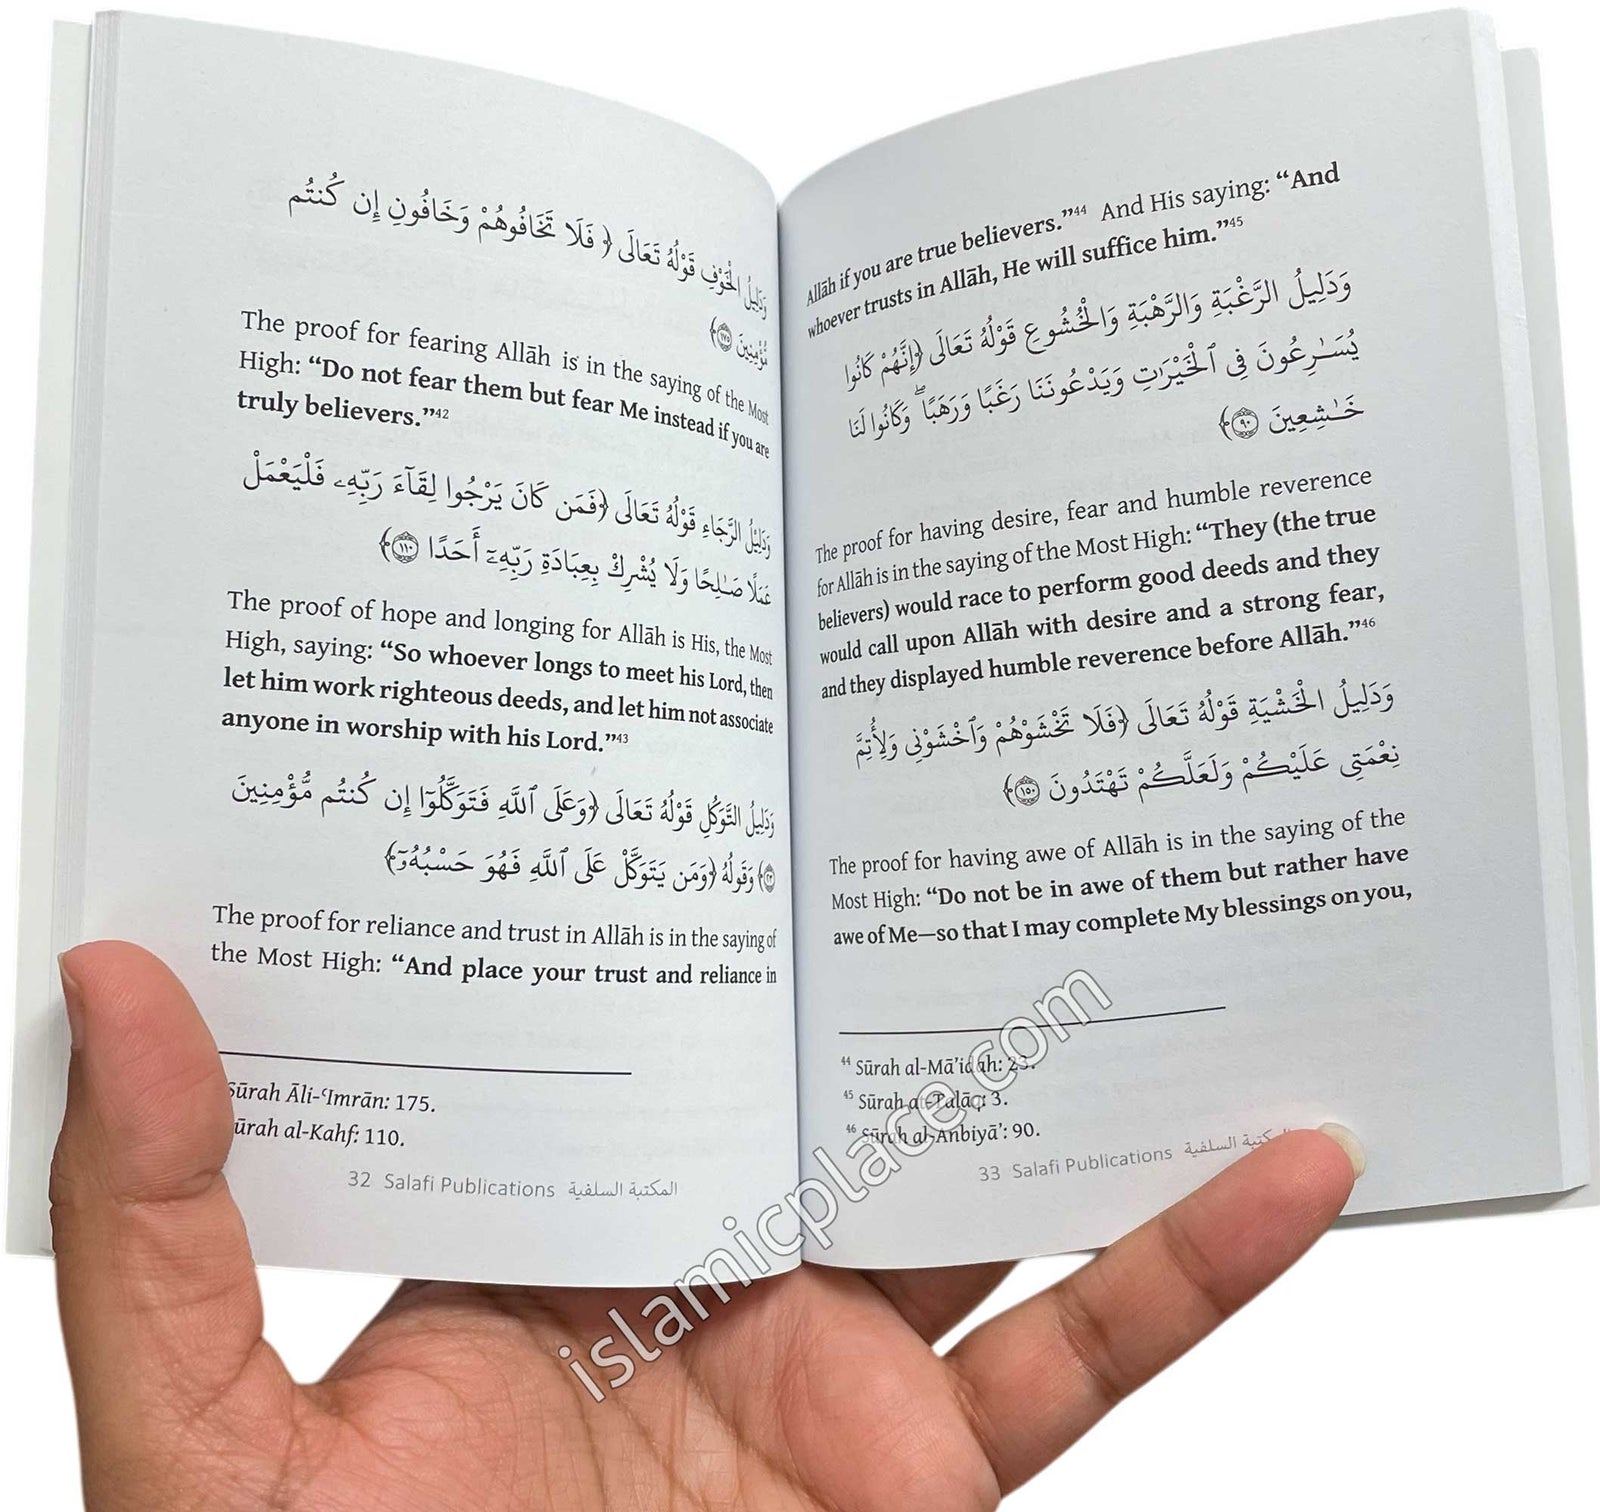 وَدَلِيلُ الْخَوْفِ قَوْلُهُ تَعَالَى ﴿ فَلَا تَخَافُوهُمْ وَخَافُونِ إِن كُنتُم
مُّؤْمِنِينَ ١٧٥﴾
The proof for fearing Allāh is in the saying of the Most
High: “Do not fear them but fear Me instead if you are
truly believers.”42
وَدَلِيْلُ الرَّجَاءِ قَوْلُهُ تَعَالَى ﴿فَمَن كَانَ يَرْجُوا لِقَآءَ رَبِّهِۦ فَلْيَعْمَلْ
عَمَلًا صَـٰلِحًا وَلَا يُشْرِكْ بِعِبَادَةِ رَبِّهِۦٓ أَحَدًا ١١٠﴾
The proof of hope and longing for Allāh is His, the Most
High, saying: “So whoever longs to meet his Lord, then
let him work righteous deeds, and let him not associate
anyone in worship with his Lord.”43
وَدَلِيلُ التَّوَكُلِ قَوْلُهُ تَعَالَى ﴿وَعَلَى ٱللَّهِ فَتَوَكَّلُوٓا إِن كُنتُم مُّؤْمِنِينَ
٢٣﴾ وَقَولُهُ ﴿وَمَن يَتَوَكَّلْ عَلَى ٱللَّهِ فَهُوَ حَسْبُهُۥٓ﴾
The proof for reliance and trust in Allāh is in the saying of
the Most High: “And place your trust and reliance in
Sūrah Āli-ʿImrān: 175.
ūrah al-Kahf: 110.
32 Salafi Publications المكتبة السلفية
Allāh if you are true believers.”44 And His saying: “And
whoever trusts in Allāh, He will suffice him.”45
وَدَلِيلُ الرَّغْبَةِ وَالرَّهْبَةِ وَالْخُشُوعِ قَوْلُهُ تَعَالَى ﴿إِنَّهُمْ كَانُوا
يُسَـٰرِعُونَ فِى ٱلْخَيْرَٰتِ وَيَدْعُونَنَا رَغَبًا وَرَهَبًا ۖ وَكَانُوا لَنَا
خَـٰشِعِينَ ٩٠﴾
The proof for having desire, fear and humble reverence
for Allāh is in the saying of the Most High: “They (the true
believers) would race to perform good deeds and they
would call upon Allāh with desire and a strong fear,
and they displayed humble reverence before Allāh.”46
وَدَلِيلُ الْخَشْيَةِ قَوْلُهُ تَعَالَى ﴿فَلَا تَخْشَوْهُمْ وَٱخْشَوْنِى وَلِأُتِمَّ
نِعْمَتِى عَلَيْكُمْ وَلَعَلَّكُمْ تَهْتَدُونَ ١٥٠﴾
The proof for having awe of Allāh is in the saying of the
Most High: “Do not be in awe of them but rather have
awe of Me—so that I may complete My blessings on you,
44 Sūrah al-Mā’idah: 23.
45 Sūrah at-Talāq: 3.
46 Sūrah al-Anbiyā’: 90.
33 Salafi Publications المكتبة السلفية
islamicplace.com